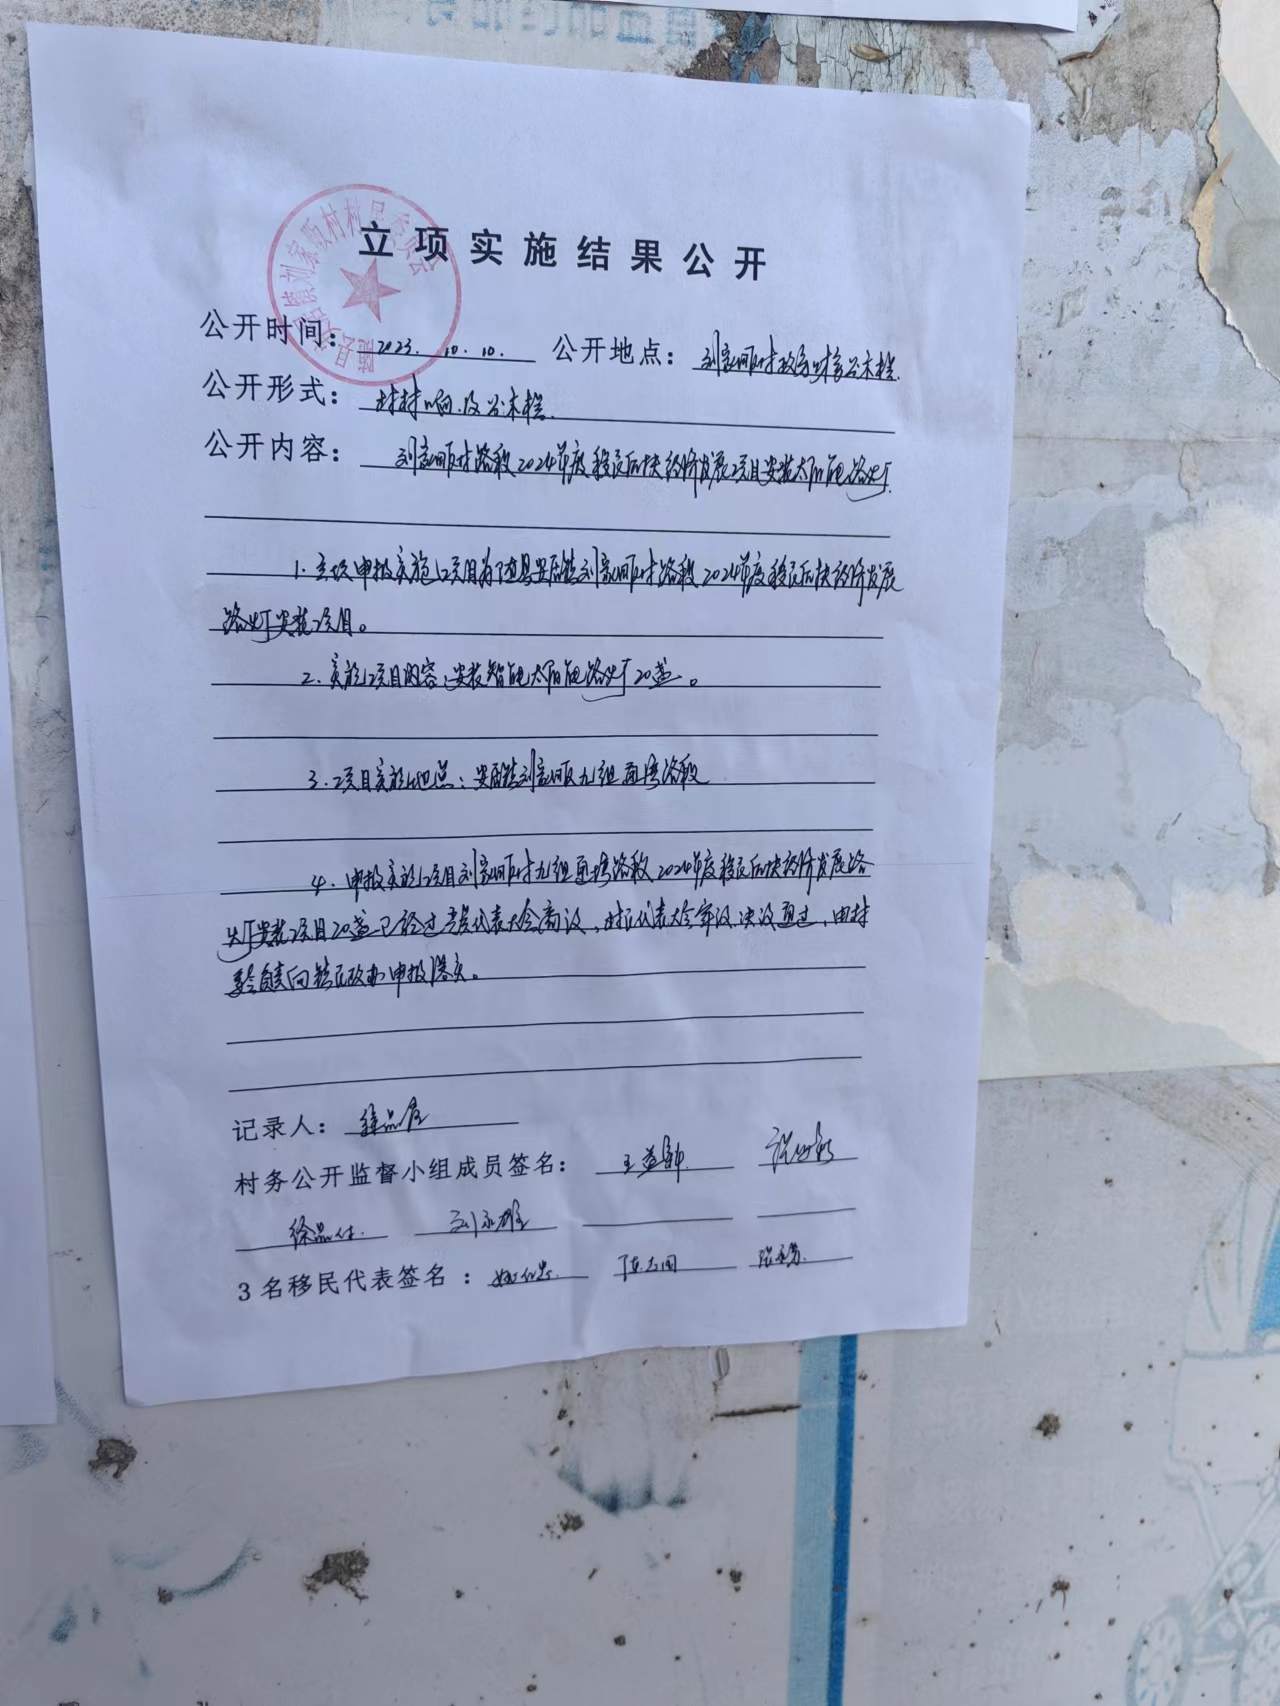 立项实施结果公开
公开时间： 2023.10.10. 公开地点： 刘家畈村政务财务公示栏.
公开形式： 村村响及公示栏.
公开内容： 刘家畈村路段2024年度移民后扶经济发展项目安装太阳能路灯.
1. 立项申报实施项目为随县安居镇刘家畈村路段2024年度移民后扶经济发展
路灯安装项目。
2. 实施项目内容：安装智能太阳能路灯20盏。
3. 项目实施地点：安居镇刘家畈九组通湾路段
4. 申报实施项目刘家畈村九组通湾路段2024年度移民后扶经济发展路
灯安装项目20盏已经过党员代表大会商议，村民代表大会审议、决议通过，由村
委会负责向镇民政办申报落实。
记录人：
村务公开监督小组成员签名： 王益
徐品仕. 刘永雄
3名移民代表签名： 陈大国
随县安居镇刘家畈村村民委员会